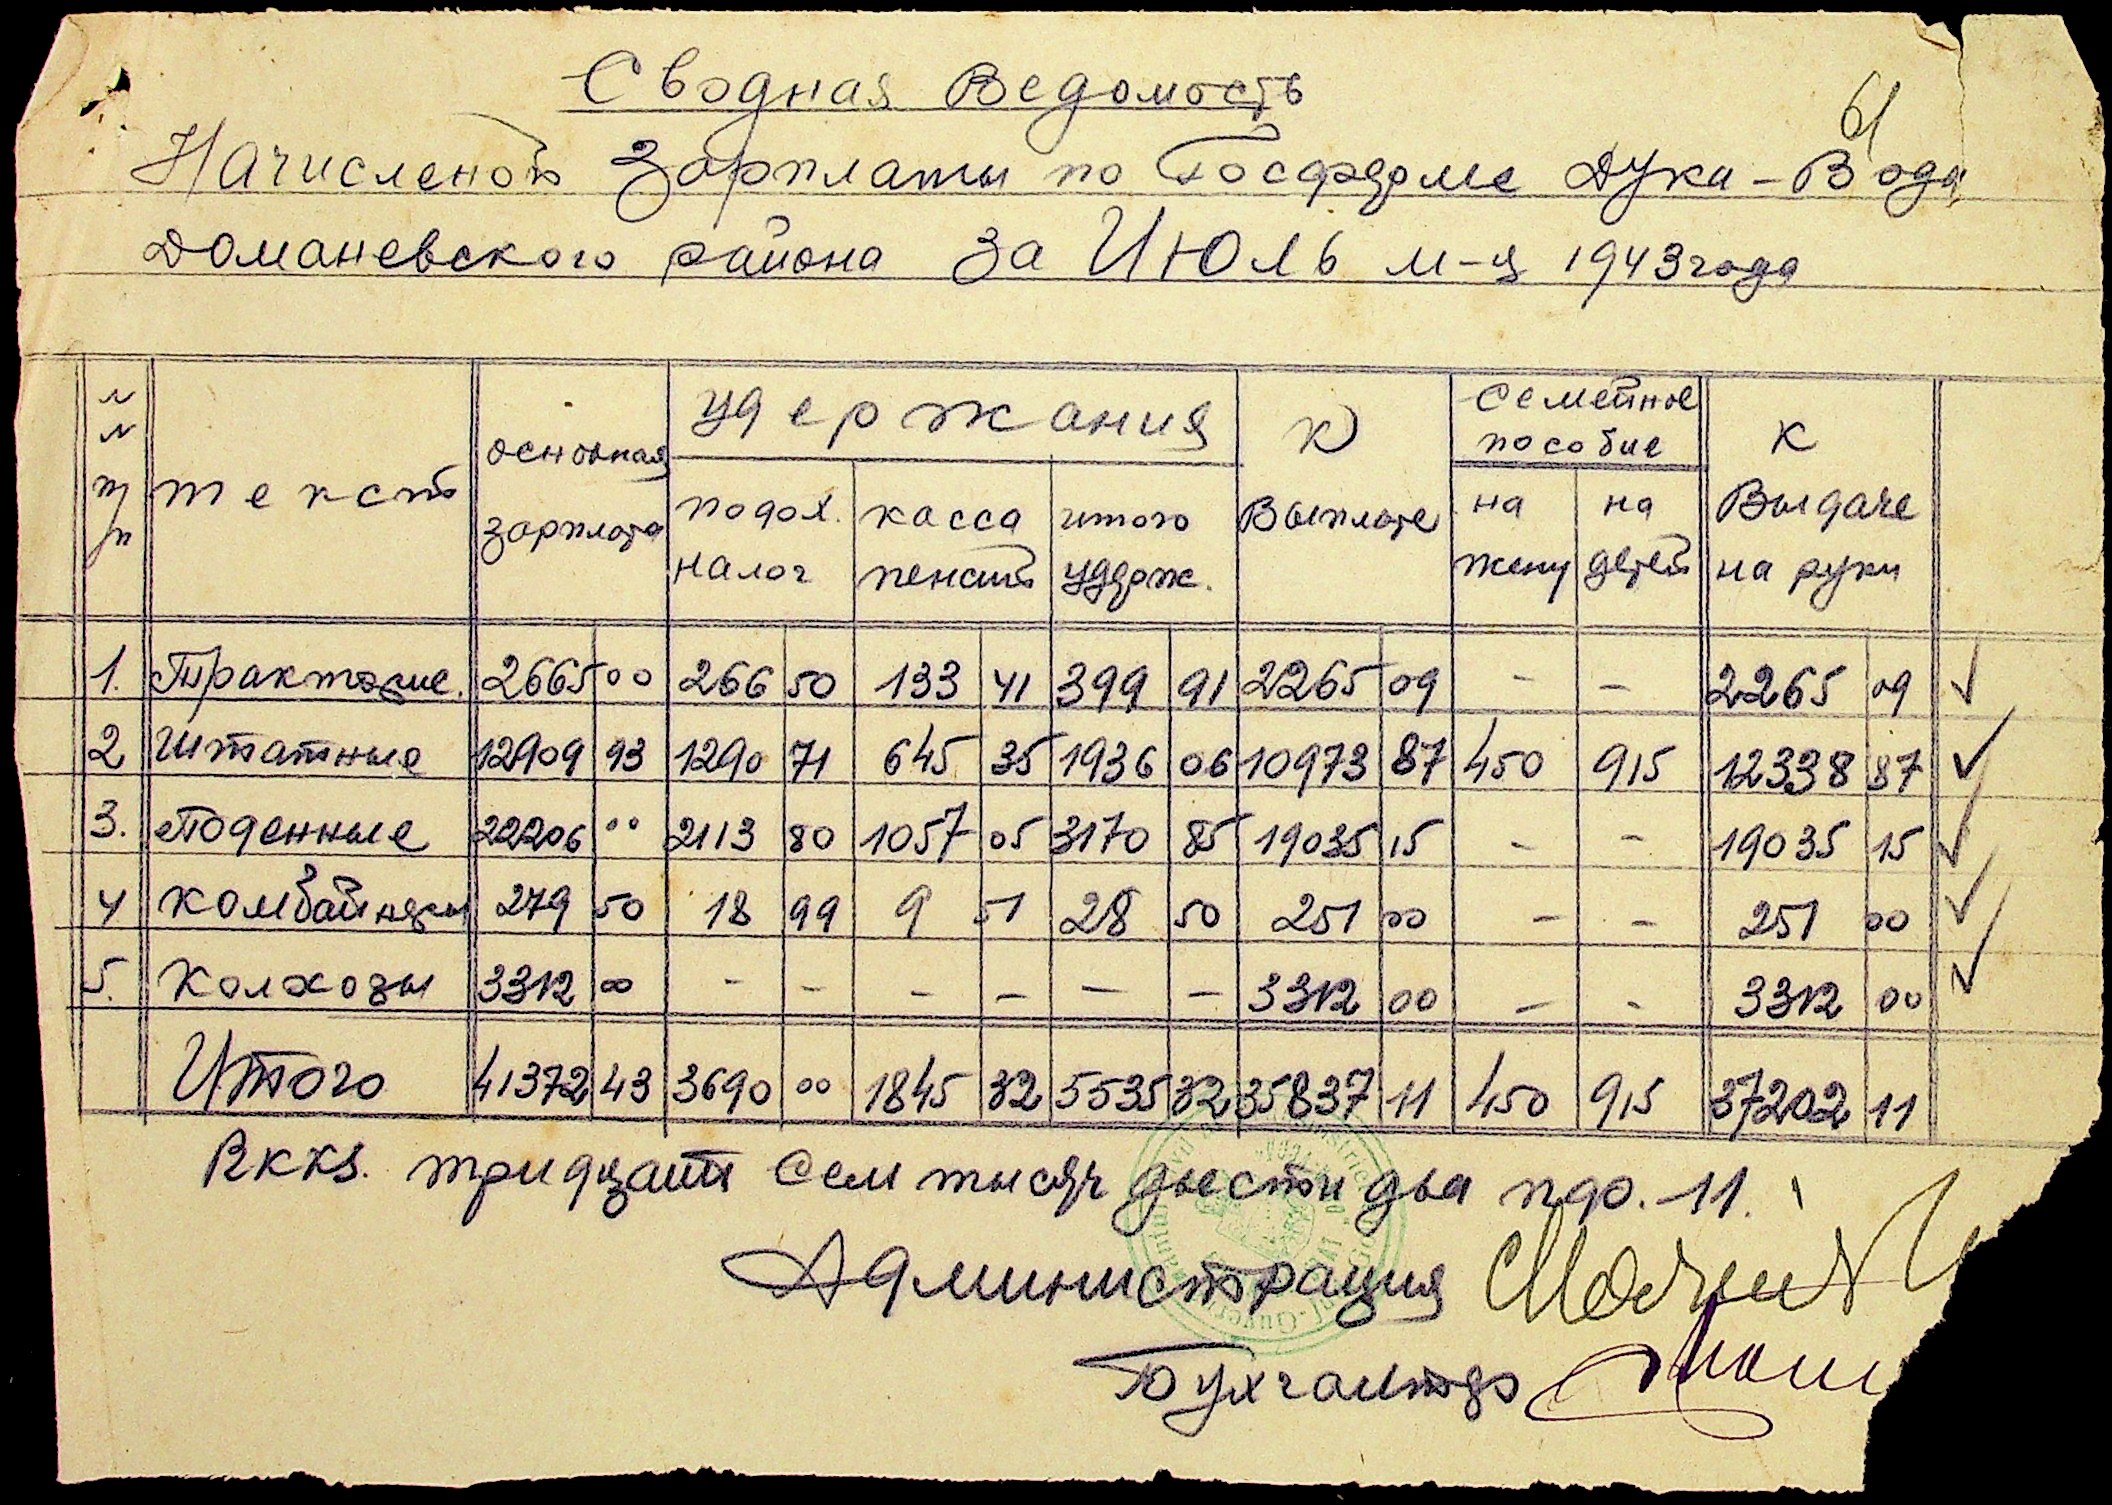 61
Сводная Ведомость
Начисленой Зарплаты по Госферме Дука-Вода
Доманевского района за Июль м-ц 1943 года
№№ п/п | текст | основная зарплата | удержания | К Выплате | семейное пособие | К Выдаче на руки
подох. налог | касса пенсий | итого удерж. | на жену | на детей
1. Трактористы. 2665 00 266 50 133 41 399 91 2265 09 – – 2265 09 ✓
2 Штатные 12909 93 1290 71 645 35 1936 06 10973 87 450 915 12338 87 ✓
3. Поденные 22206 00 2113 80 1057 05 3170 85 19035 15 – – 19035 15 ✓
4 Комбайнеры 279 50 18 99 9 51 28 50 251 00 – – 251 00 ✓
5. Колхозы 3312 00 – – – – – – 3312 00 – – 3312 00 ✓
Итого 41372 43 3690 00 1845 32 5535 32 35837 11 450 915 37202 11
RKKS. тридцать сем тысяч двести два пфр. -11.
Администрация
Бухгалтер